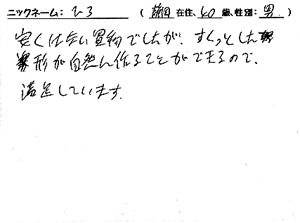 ニックネーム: ひろ ( 静岡 在住、60 歳、性別: 男 )
安くはない買物でしたが、すくっとした
形が自然ん作ることができるので、
満足しています。